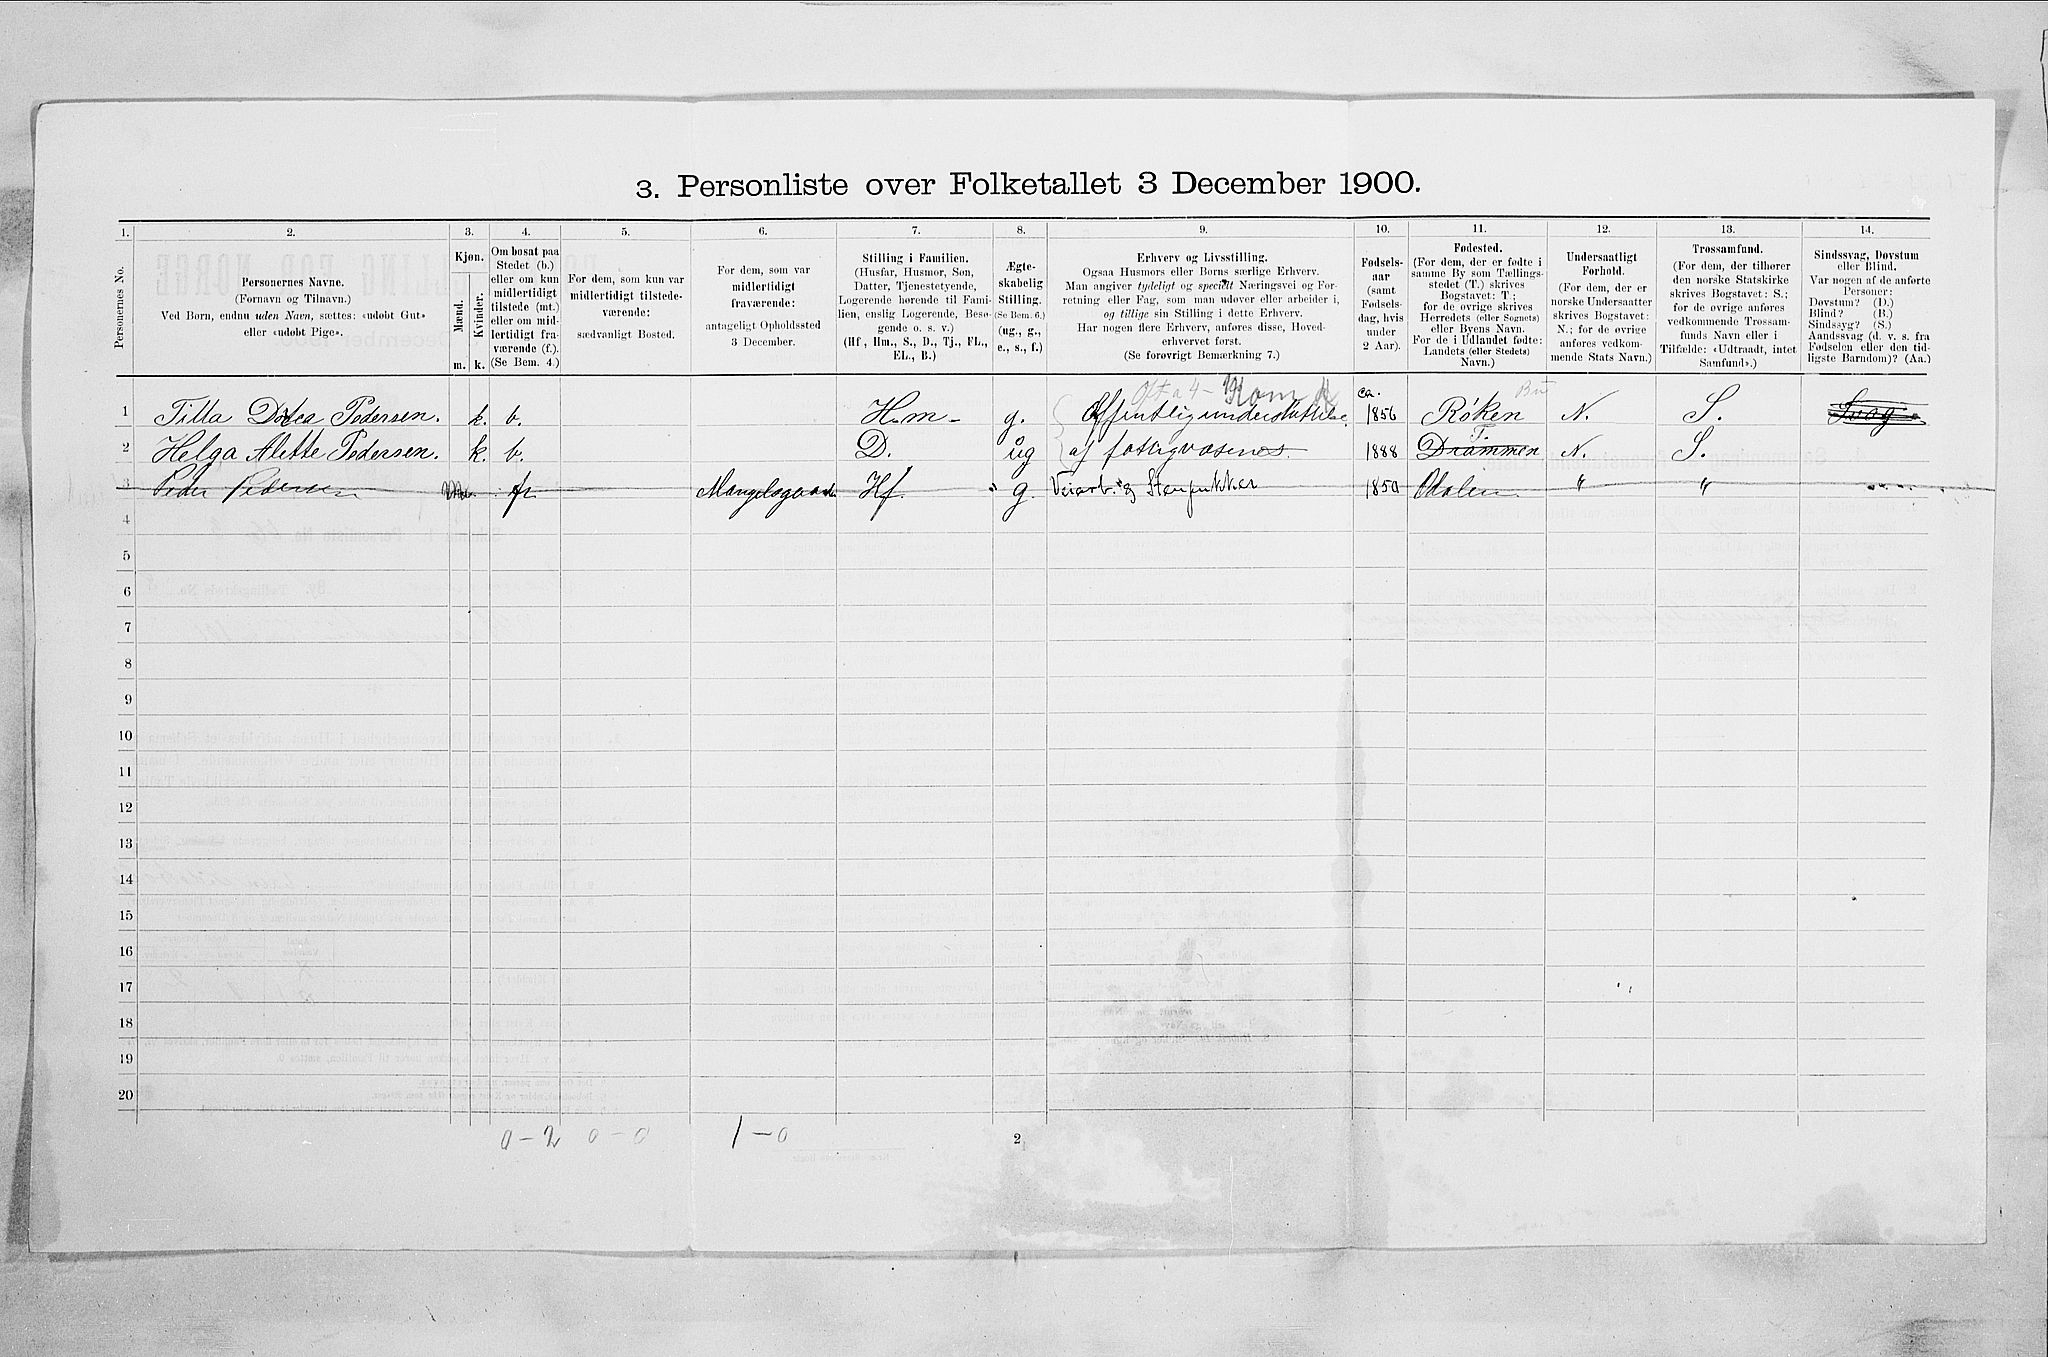 3. Personliste over Folketallet 3 December 1900.
1. 2. 3. 4. 5. 6. 7. 8. 9. 10. 11. 12. 13. 14.
Personernes No.
Personernes Navne.
(Fornavn og Tilnavn.)
Ved Børn, endnu uden Navn, sættes: «udøbt Gut»
eller «udøbt Pige».
Kjøn.
Mænd.
Kvinder.
m. k.
Om bosat paa
Stedet (b.)
eller om kun
midlertidigt
tilstede (mt.)
eller om mid-
lertidigt fra-
værende (f.).
(Se Bem. 4.)
For dem, som kun var
midlertidigt tilstede-
værende:
sædvanligt Bosted.
For dem, som var
midlertidigt
fraværende:
antageligt Opholdssted
3 December.
Stilling i Familien.
(Husfar, Husmor, Søn,
Datter, Tjenestetyende,
Logerende hørende til Fami-
lien, enslig Logerende, Besø-
gende o. s. v.)
(Hf, Hm., S., D., Tj., FL.,
EL., B.)
Ægte-
skabelig
Stilling.
(Se Bem. 6.)
(ug., g.,
e., s., f.)
Erhverv og Livsstilling.
Ogsaa Husmors eller Børns særlige Erhverv.
Man angiver tydeligt og specielt Næringsvei og For-
retning eller Fag, som man udøver eller arbeider i,
og tillige sin Stilling i dette Erhverv.
Har nogen flere Erhverv, anføres disse, Hoved-
erhvervet først.
(Se forøvrigt Bemærkning 7.)
Fødsels-
aar
(samt
Fødsels-
dag, hvis
under
2 Aar).
Fødested.
(For dem, der er fødte i
samme By som Tællings-
stedet (T.) skrives
Bogstavet: T;
for de øvrige skrives
Herredets (eller Sognets)
eller Byens Navn.
For de i Udlandet fødte:
Landets (eller Stedets)
Navn.)
Undersaatligt
Forhold.
(For dem, der er
norske Undersaatter
skrives Bogstavet:
N.; for de øvrige
anføres vedkom-
mende Stats Navn.)
Trossamfund.
(For dem, der tilhører
den norske Statskirke
skrives Bogstavet: S.;
for de øvrige anføres
vedkommende Trossam-
funds Navn eller i
Tilfælde: «Udtraadt, intet
Samfund».)
Sindssvag, Døvstum
eller Blind.
Var nogen af de anførte
Personer:
Døvstum? (D.)
Blind? (B.)
Sindssyg? (S.)
Aandssvag (d. v. s. fra
Fødselen eller den tid-
ligste Barndom)? (Aa.)
Kom ca. Bu
1 Tilla Pedersen. k. b. Hm. g. Offentlig understøttelse 1856 Røken N. S. Svag
T.
2 Helga Alette Pedersen. k. b. D. ug af fattigvæsenet. 1888 Drammen N. S.
3 Peder Pedersen m. fr Mangelsgaarden Hf. g. Veiarb. og Stenpukker 1850 Odalen " "
4
5
6
7
8
9
10
11
12
13
14
15
16
17
18
19
20
0 - 2 0 - 0 1 - 0 2